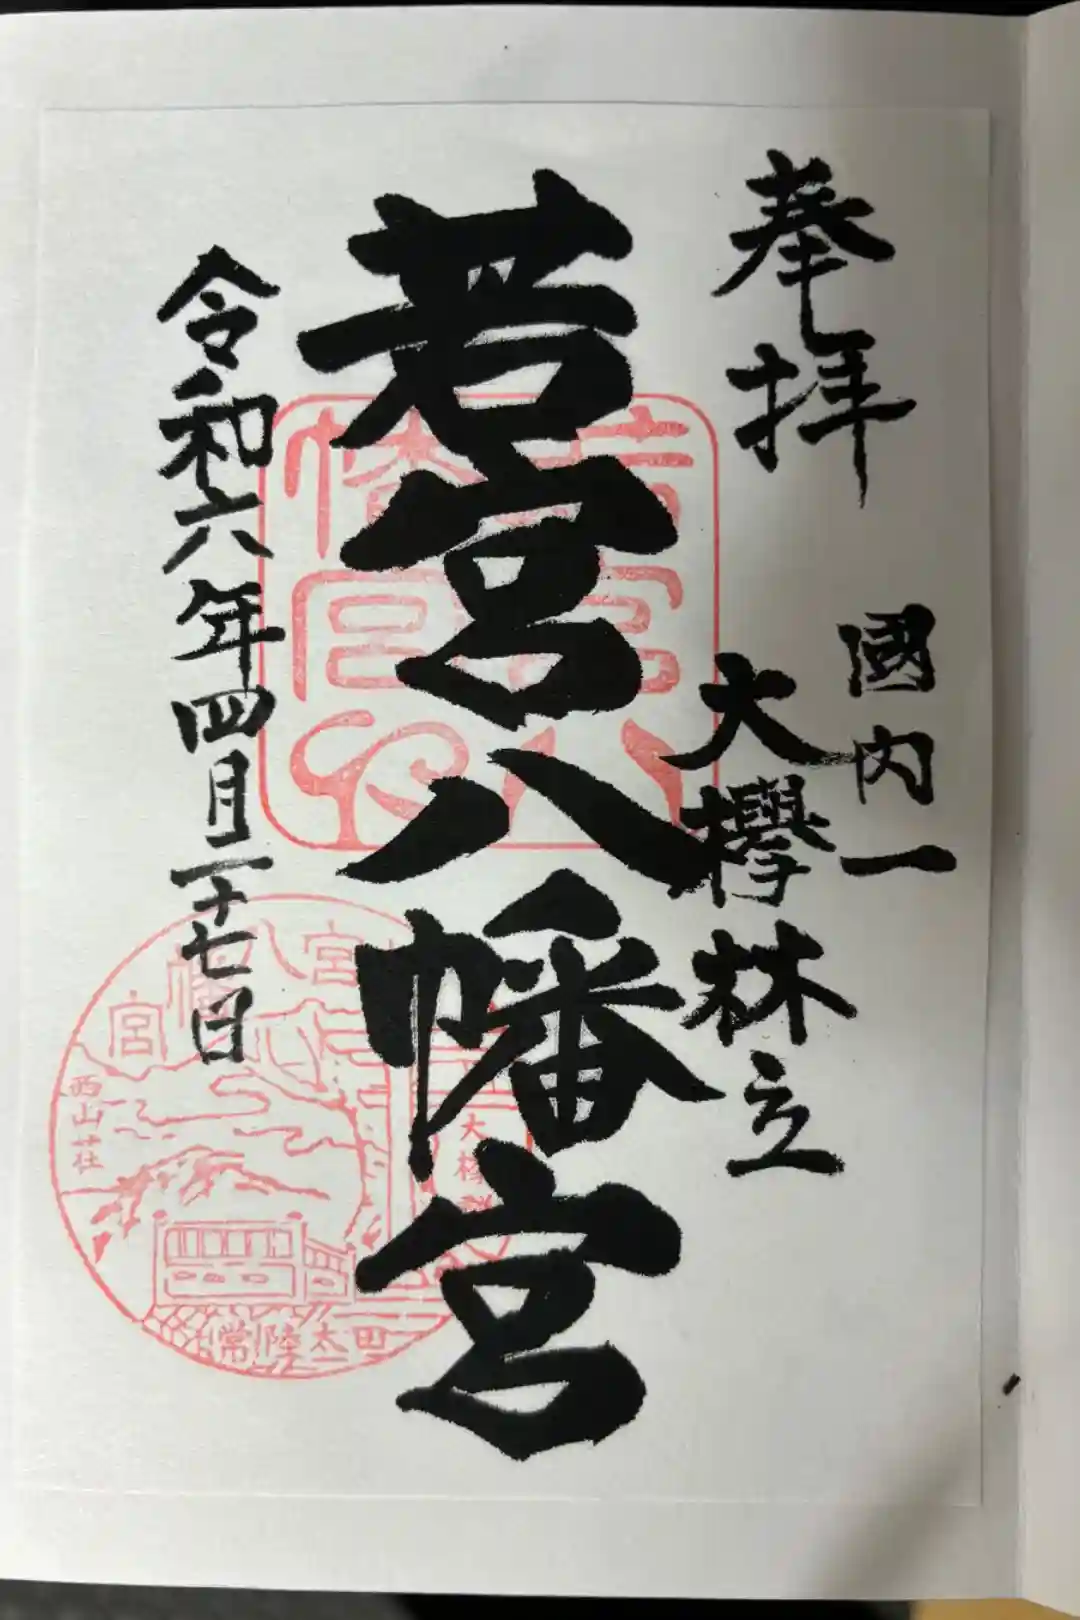 奉拝
國内一
大欅林立
若宮八幡宮
令和六年四月二十七日
若宮八
幡宮印
宮八幡宮
西山荘
大欅
常陸太田